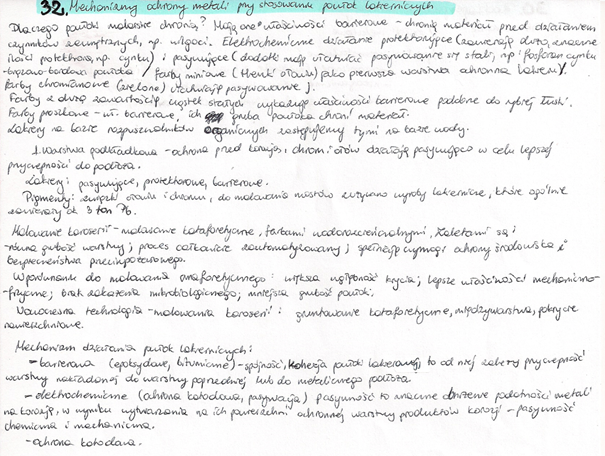 32. Mechanizmy ochrony metali przy stosowaniu powłok lakierniczych
Dlaczego powłoki malarskie chronią? Mają one właściwości barierowe - chronią materiał przed działaniem
czynników zewnętrznych, np. wilgoci. Elektrochemiczne działanie protektorujące (zawierają dużą, znaczne
ilości protektora, np. cynku) i pasywujące (dodatki mają ułatwiać pasywowanie się stali, np. fosforan cynku
- brązowo-bordowa powłoka / farby miniowe (tlenki ołowiu) jako pierwsza warstwa ochronna lakieru /
farby chromianowe (zielone) ułatwiają pasywowanie).
Farby z dużą zawartością cząstek stałych wykazują właściwości barierowe podobne do rybiej łuski.
Farby proszkowe - wł. barierowe, ich gruba powłoka chroni materiał.
Lakiery na bazie rozpuszczalników organicznych zastępujemy tymi na bazie wody.
1. Warstwa podkładowa - ochrona przed korozją, chrom i ołów działają pasywująco w celu lepszej
przyczepności do podłoża.
Lakiery: pasywujące, protektorowe, barierowe.
Pigmenty: związki ołowiu i chromu, do malowania mostów zużywano wyroby lakiernicze, które ogólnie
zawierały ok 3 ton Pb.
Malowanie karoserii - malowanie kataforetyczne, farbami wodorozcieńczalnymi. Zaletami są:
- równa grubość warstwy; proces całkowicie zautomatyzowany; spełniają wymogi ochrony środowiska i
bezpieczeństwa przeciwpożarowego.
W porównaniu do malowania anaforetycznego: większa wgłębność krycia; lepsze właściwości mechaniczno-
fizyczne; brak zakażenia mikrobiologicznego; mniejsza grubość powłoki.
Nowoczesna technologia - malowania karoserii: gruntowanie kataforetyczne, międzywarstwa, pokrycie
nawierzchniowe.
Mechanizm działania powłok lakierniczych:
- barierowa (epoksydowe, bitumiczne) - spójność, kohezja powłoki lakierowej, to od niej zależy przyczepność
warstwy nakładanej do warstwy poprzedniej lub do metalicznego podłoża.
- elektrochemiczne (ochrona katodowa, pasywacja) pasywność to znaczne obniżenie podatności metali
na korozję, w wyniku wytwarzania na ich powierzchni ochronnej warstwy produktów korozji - pasywność
chemiczna i mechaniczna.
- ochrona katodowa.